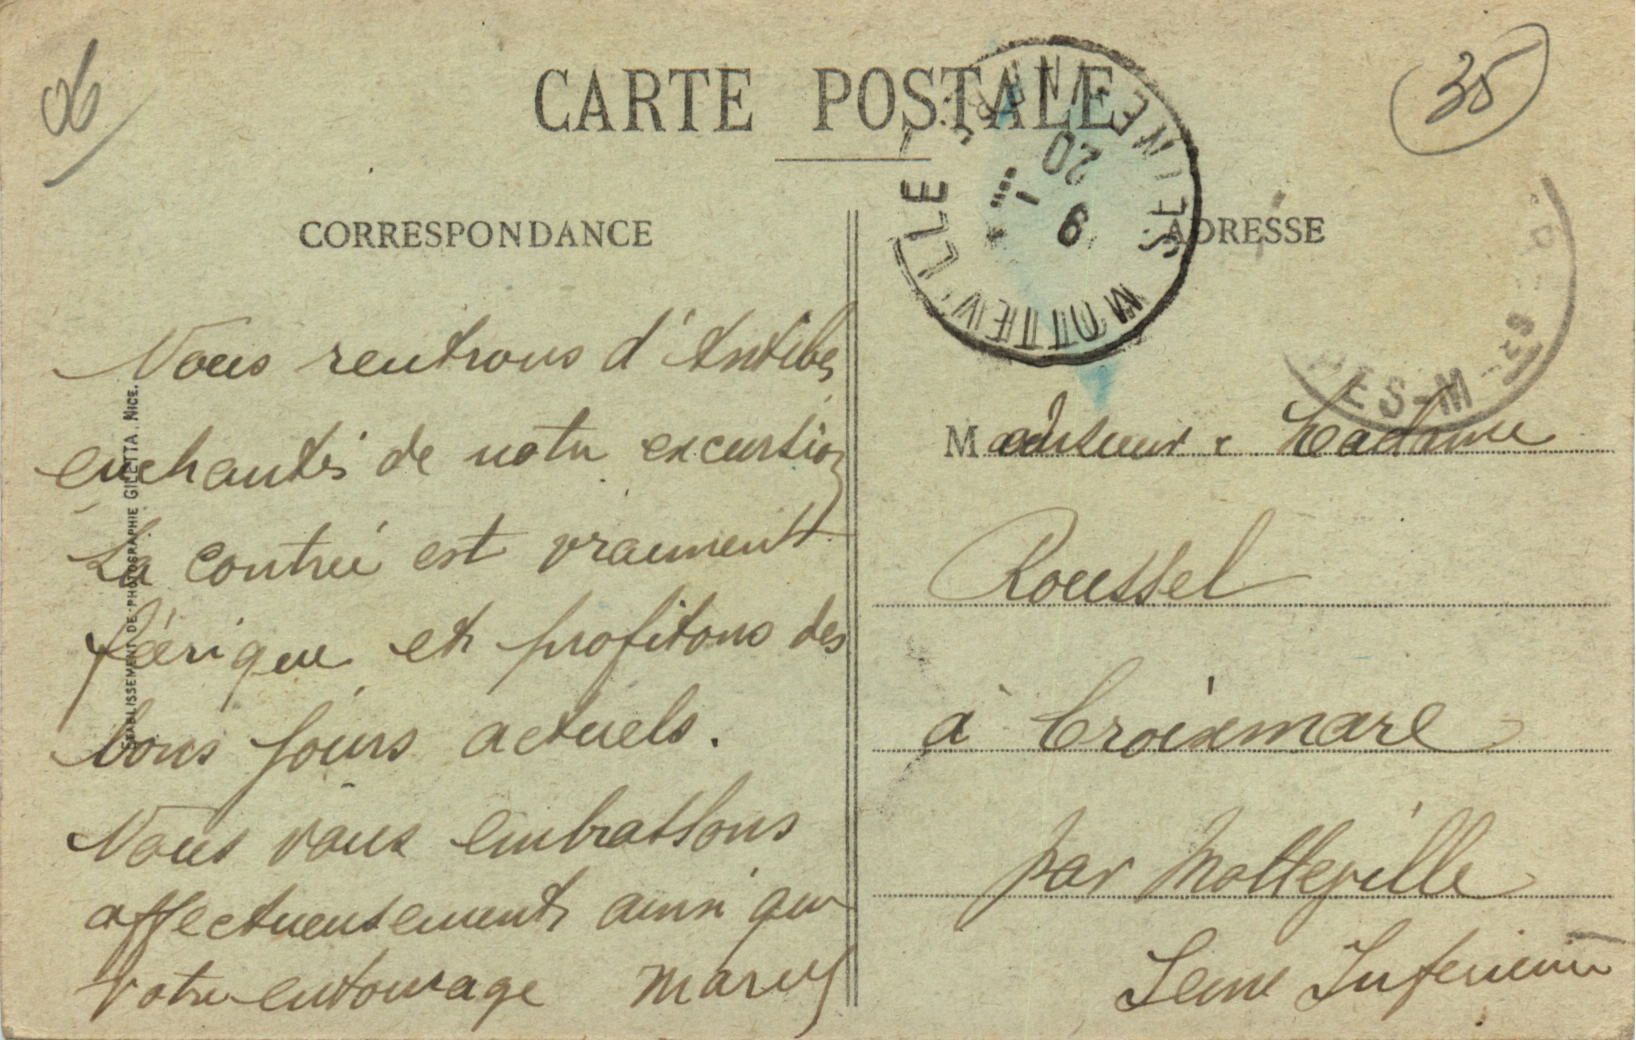 06
CARTE POSTALE
35
CORRESPONDANCE
ADRESSE
MOTTEVILLE SEINE INFRE
20
9
ES-M
Nous rentrons d'Antibes
enchantés de notre excursion
La contrée est vraiment
féerique et profitons des
bons jours actuels.
Nous vous embrassons
affectueusement ainsi que
votre entourage
ETABLISSEMENT DE PHOTOGRAPHIE GILETTA. NICE.
Monsieur & Madame
Roussel
à Croixmare
par Motteville
Seine Inférieure